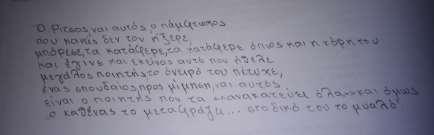 Ο Ρίτσος ναι αυτός, ο πάμφτωχος
που κανείς δεν τον ήξερε,
μπόρεσε, τα κατάφερε, τα κατάφερε όπως και η κόρη του
και έγινε και εκείνος αυτό που ήθελε
μεγάλος ποιητής το όνειρό του πέτυχε,
ένας σπουδαίος προς μίμηση, ναι αυτός
είναι ο ποιητής που τα ανακατεύει όλα και όμως
ο καθένας το μεταφράζει... στο δικό του το μυαλό